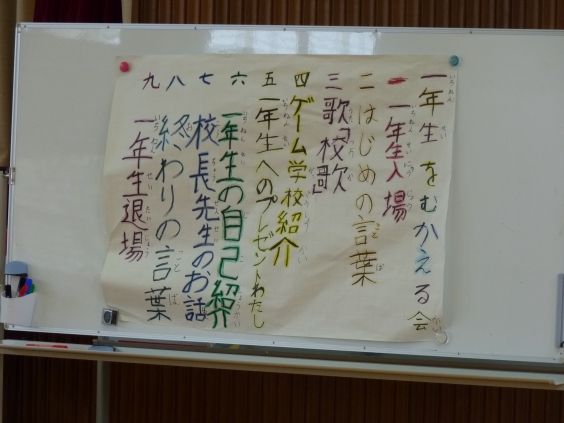 一年生をむかえる会
一 一年生入場
二 はじめの言葉
三 歌「校歌」
四 ゲーム学校紹介
五 一年生へのプレゼントわたし
六 一年生の自己紹介
七 校長先生のお話
八 終わりの言葉
九 一年生退場